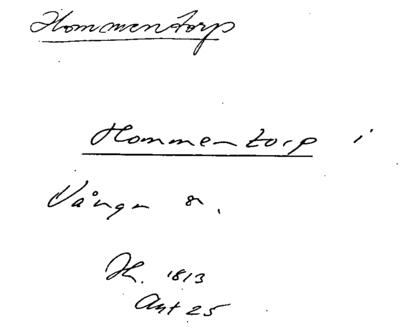 Hommentorp
Hommentorp i
Vånga s.
H. 1813
Ant 25